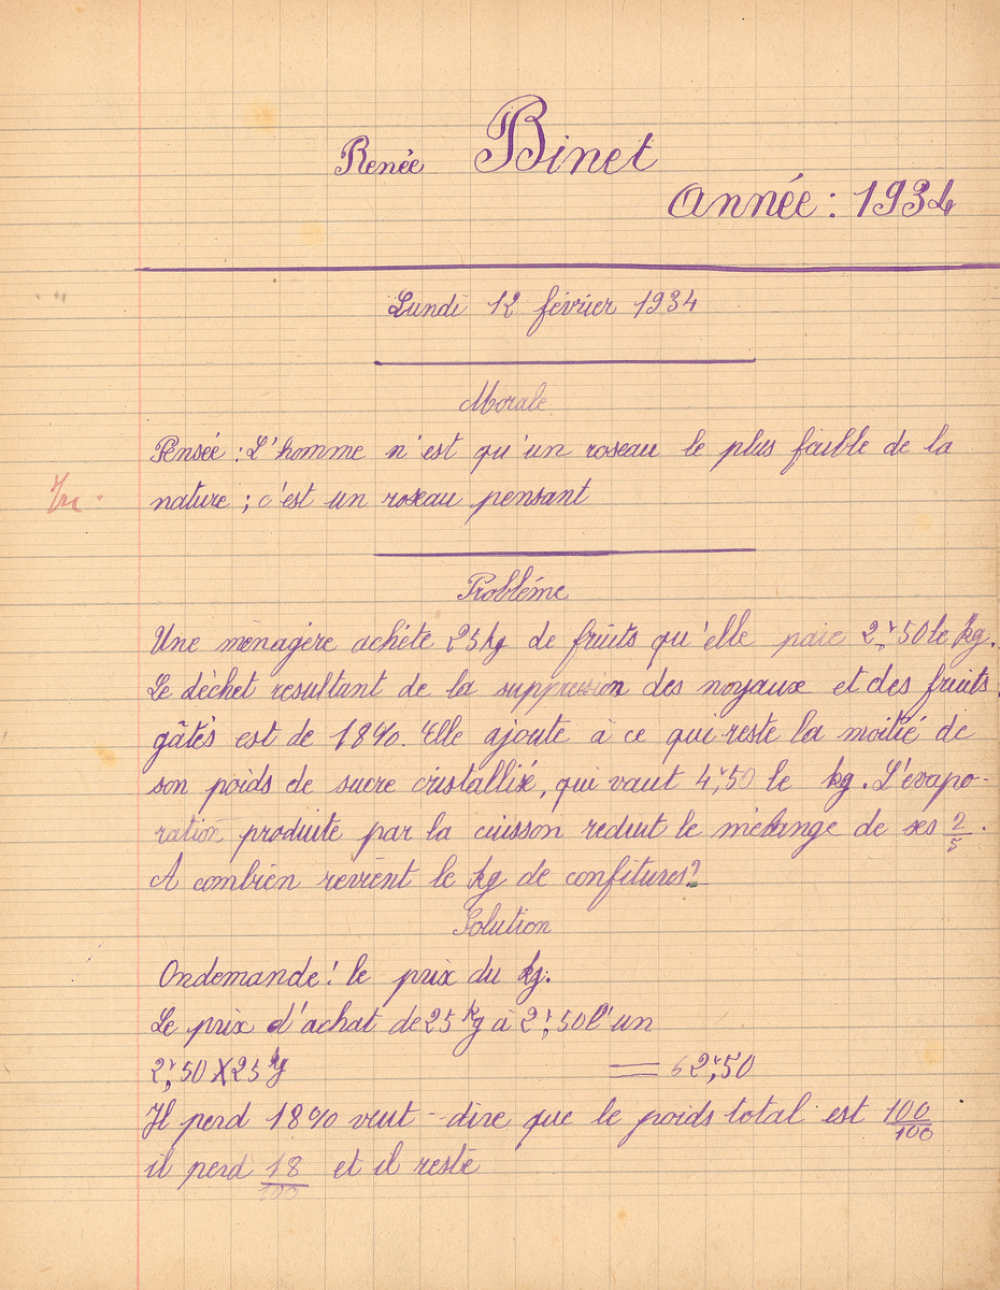 Renée Binet
Année : 1934
Lundi 12 février 1934
Morale
Pensée : L'homme n'est qu'un roseau le plus faible de la
nature ; c'est un roseau pensant
Probléme
Une ménagère achète 25 kg de fruits qu'elle paie 2f,50 le kg.
Le déchet resultant de la suppression des noyaux et des fruits
gâtés est de 18%. Elle ajoute à ce qui reste la moitié de
son poids de sucre cristallisé, qui vaut 4f,50 le kg. L'évapo-
ration produite par la cuisson reduit le mélange de ses 2/5.
A combien revient le kg de confitures?
Solution
On demande : le prix du kg.
Le prix d'achat de 25 kg à 2f,50 l'un
2f,50 X 25 kg = 62f,50
Il perd 18% veut-dire que le poids total est 100/100
il perd 18/100 et il reste